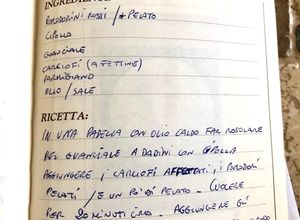 INGREDIENTI
POMODORINI ROSSI / + PELATO
CIPOLLA
GUANCIALE
CARCIOFI (A FETTINE)
PARMIGIANO
OLIO / SALE
RICETTA:
IN UNA PADELLA CON OLIO CALDO FAR ROSOLARE
DEL GUANCIALE A DADINI CON CIPOLLA
AGGIUNGERE I CARCIOFI AFFETTATI, I POMODORI
PELATI / E UN PO' DI PELATO - CUOCERE
PER 20 MINUTI CIRCA - AGGIUNGERE GLI